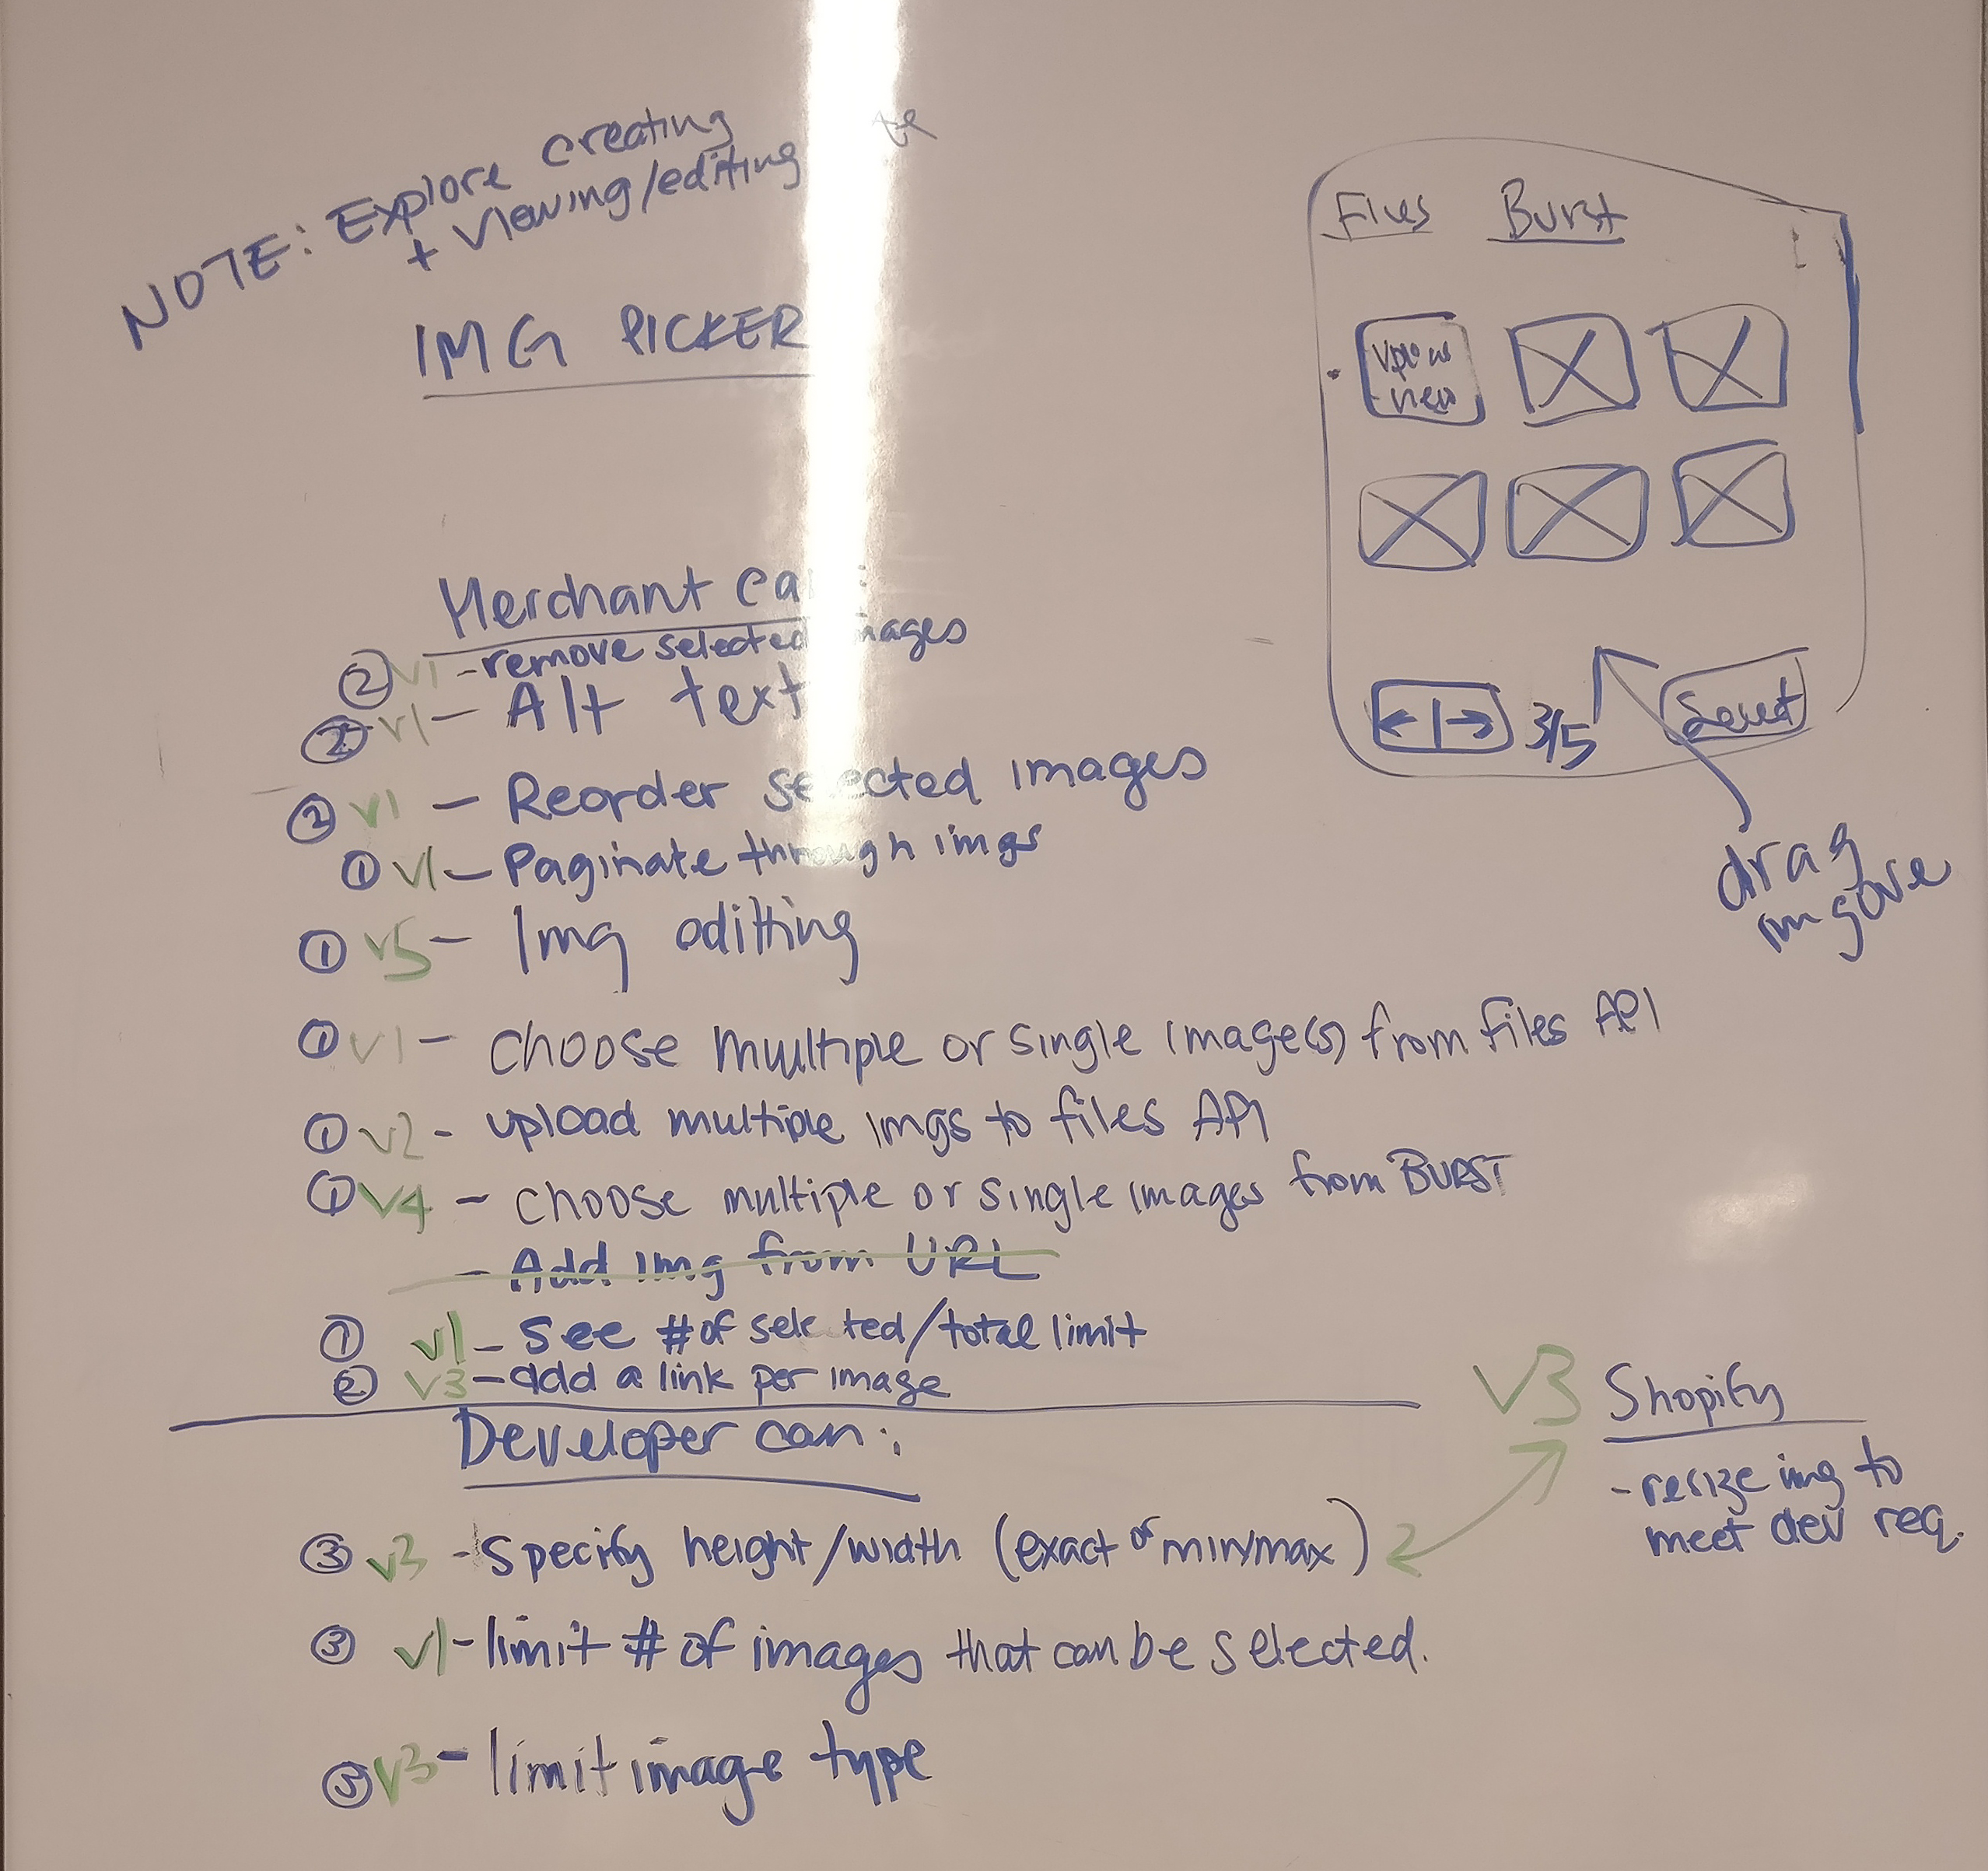 NOTE: Explore creating
+ viewing/editing
IMG PICKER
Merchant ca
② v1 - remove selected images
② v1 - Alt text
② v1 - Reorder selected images
① v1 - Paginate through imgs
① v5 - Img editting
① v1 - choose multiple or single image(s) from files API
① v2 - upload multiple imgs to files API
① v4 - choose multiple or single images from BURST
- Add img from URL
① v1 - see # of selected/total limit
② v3 - add a link per image
Developer can:
③ v3 - specify height/width (exact or min/max)
③ v1 - limit # of images that can be selected.
③ v3 - limit image type
Files Burst
new
←|→ 3/5 Select
drag
v3 Shopify
- resize img to
meet dev req.